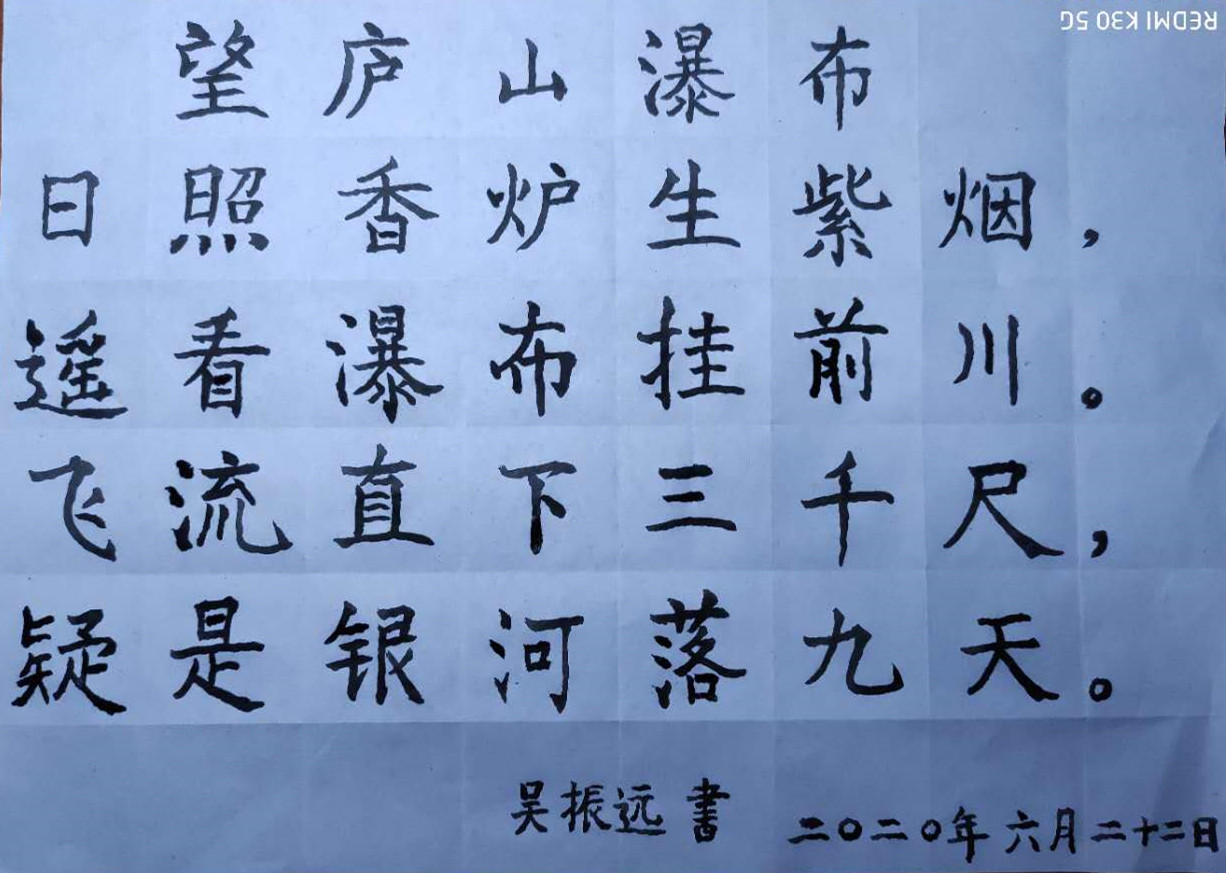 REDMI K30 5G
望庐山瀑布
日照香炉生紫烟，
遥看瀑布挂前川。
飞流直下三千尺，
疑是银河落九天。
吴振远書 二〇二〇年六月二十二日